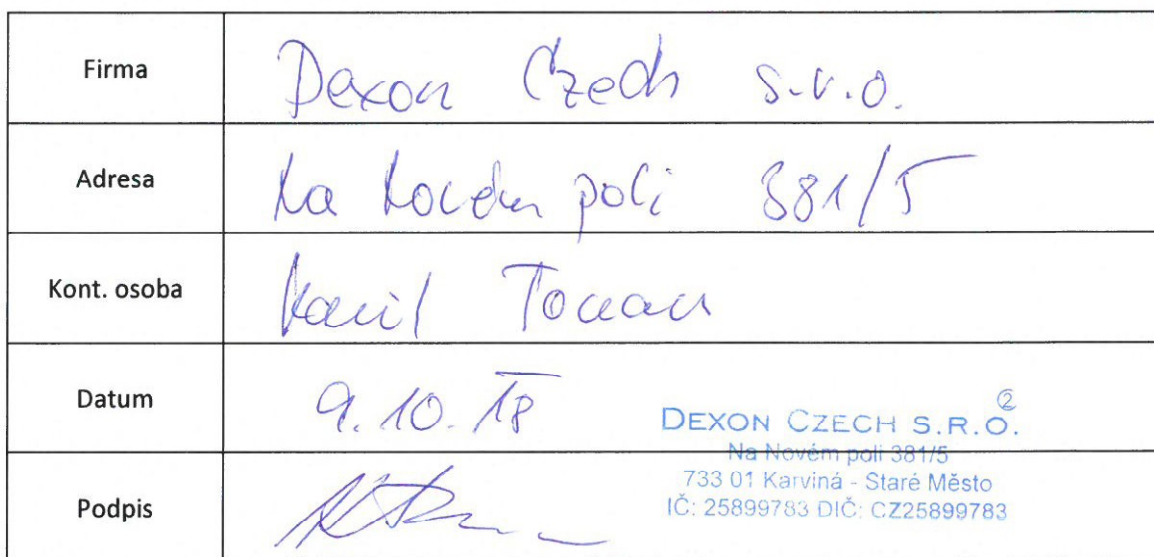 Firma Dexon Czech s.r.o.
Adresa Na Novém poli 381/5
Kont. osoba Kamil Toman
Datum 9.10.18
DEXON CZECH S.R.O. 2
Na Novém poli 381/5
733 01 Karviná - Staré Město
IČ: 25899783 DIČ: CZ25899783
Podpis